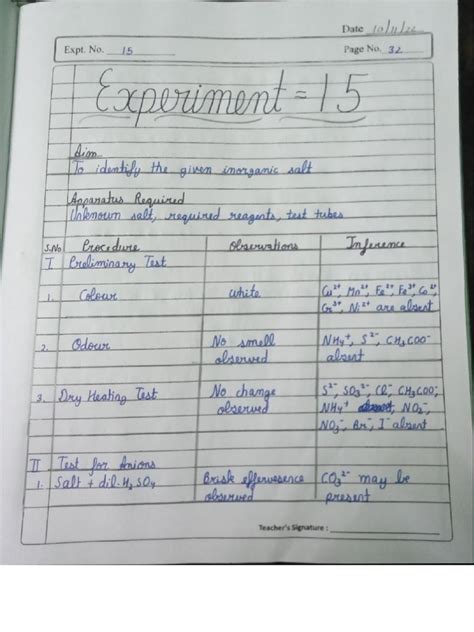 Date 10/11/22
Expt. No. 15 Page No. 32
Experiment = 15
Aim
To identify the given inorganic salt
Apparatus Required
Unknown salt, required reagents, test tubes
S.No Procedure Observations Inference
I Preliminary Test
1. Colour white Cu²⁺, Mn²⁺, Fe²⁺, Fe³⁺, Co²⁺,
Cr³⁺, Ni²⁺ are absent
2. Odour No smell NH₄⁺, S²⁻, CH₃COO⁻
observed absent
3. Dry Heating Test No change S²⁻, SO₃²⁻, Cl⁻, CH₃COO⁻,
observed NH₄⁺, NO₂⁻,
NO₃⁻, Br⁻, I⁻ absent
II Test for Anions
1. Salt + dil. H₂SO₄ Brisk effervesence CO₃²⁻ may be
observed present
Teacher's Signature :